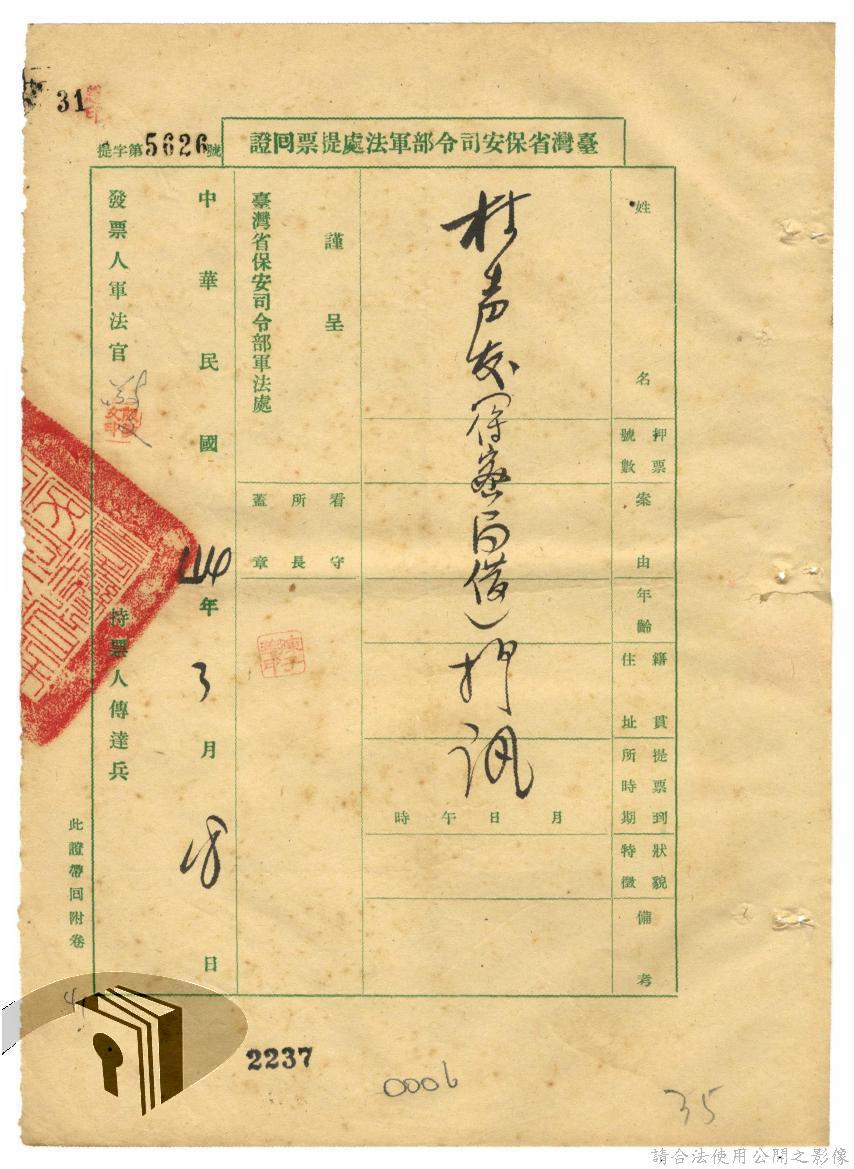 31
臺灣省保安司令部軍法處提票回證
提字第5626號
姓名
押票號數
案由
年齡
籍貫住址
提票到所時期
月 日 午 時
狀貌特徵
備考
杜声友(保密局借)押訊
謹呈
臺灣省保安司令部軍法處
看守所長蓋章
中華民國44年3月8日
發票人軍法官
持票人傳達兵
此證帶回附卷
2237
0006
35
請合法使用公開之影像